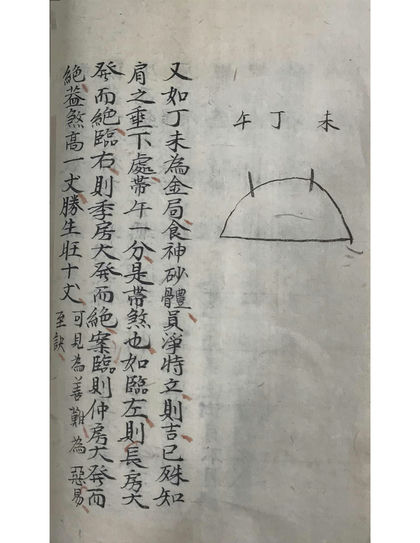 未丁午
又如丁未為金局食神砂體員淨特立則吉已殊知
肩之垂下處帶午一分是帶煞也如臨左則長房大
發而絕臨右則季房大發而絕案臨則仲房大發而
絕葢煞高一丈勝生旺十丈可見為善難為惡易
至訣